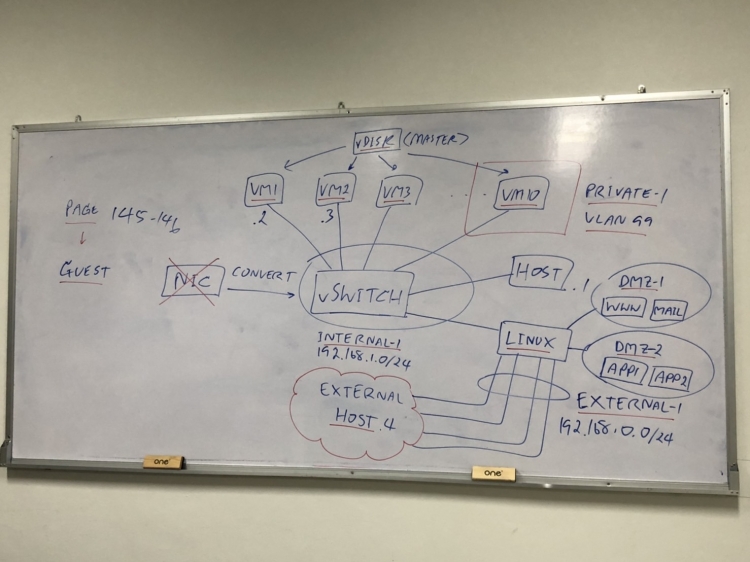 vDISK (MASTER)
VM1
VM2
VM3
VM10
.2
.3
PRIVATE-1
VLAN 99
PAGE 145-146
GUEST
NIC
CONVERT
vSWITCH
HOST
.1
INTERNAL-1
192.168.1.0/24
LINUX
DMZ-1
WWW MAIL
DMZ-2
APP1 APP2
EXTERNAL
HOST .4
EXTERNAL-1
192.168.0.0/24
one
one